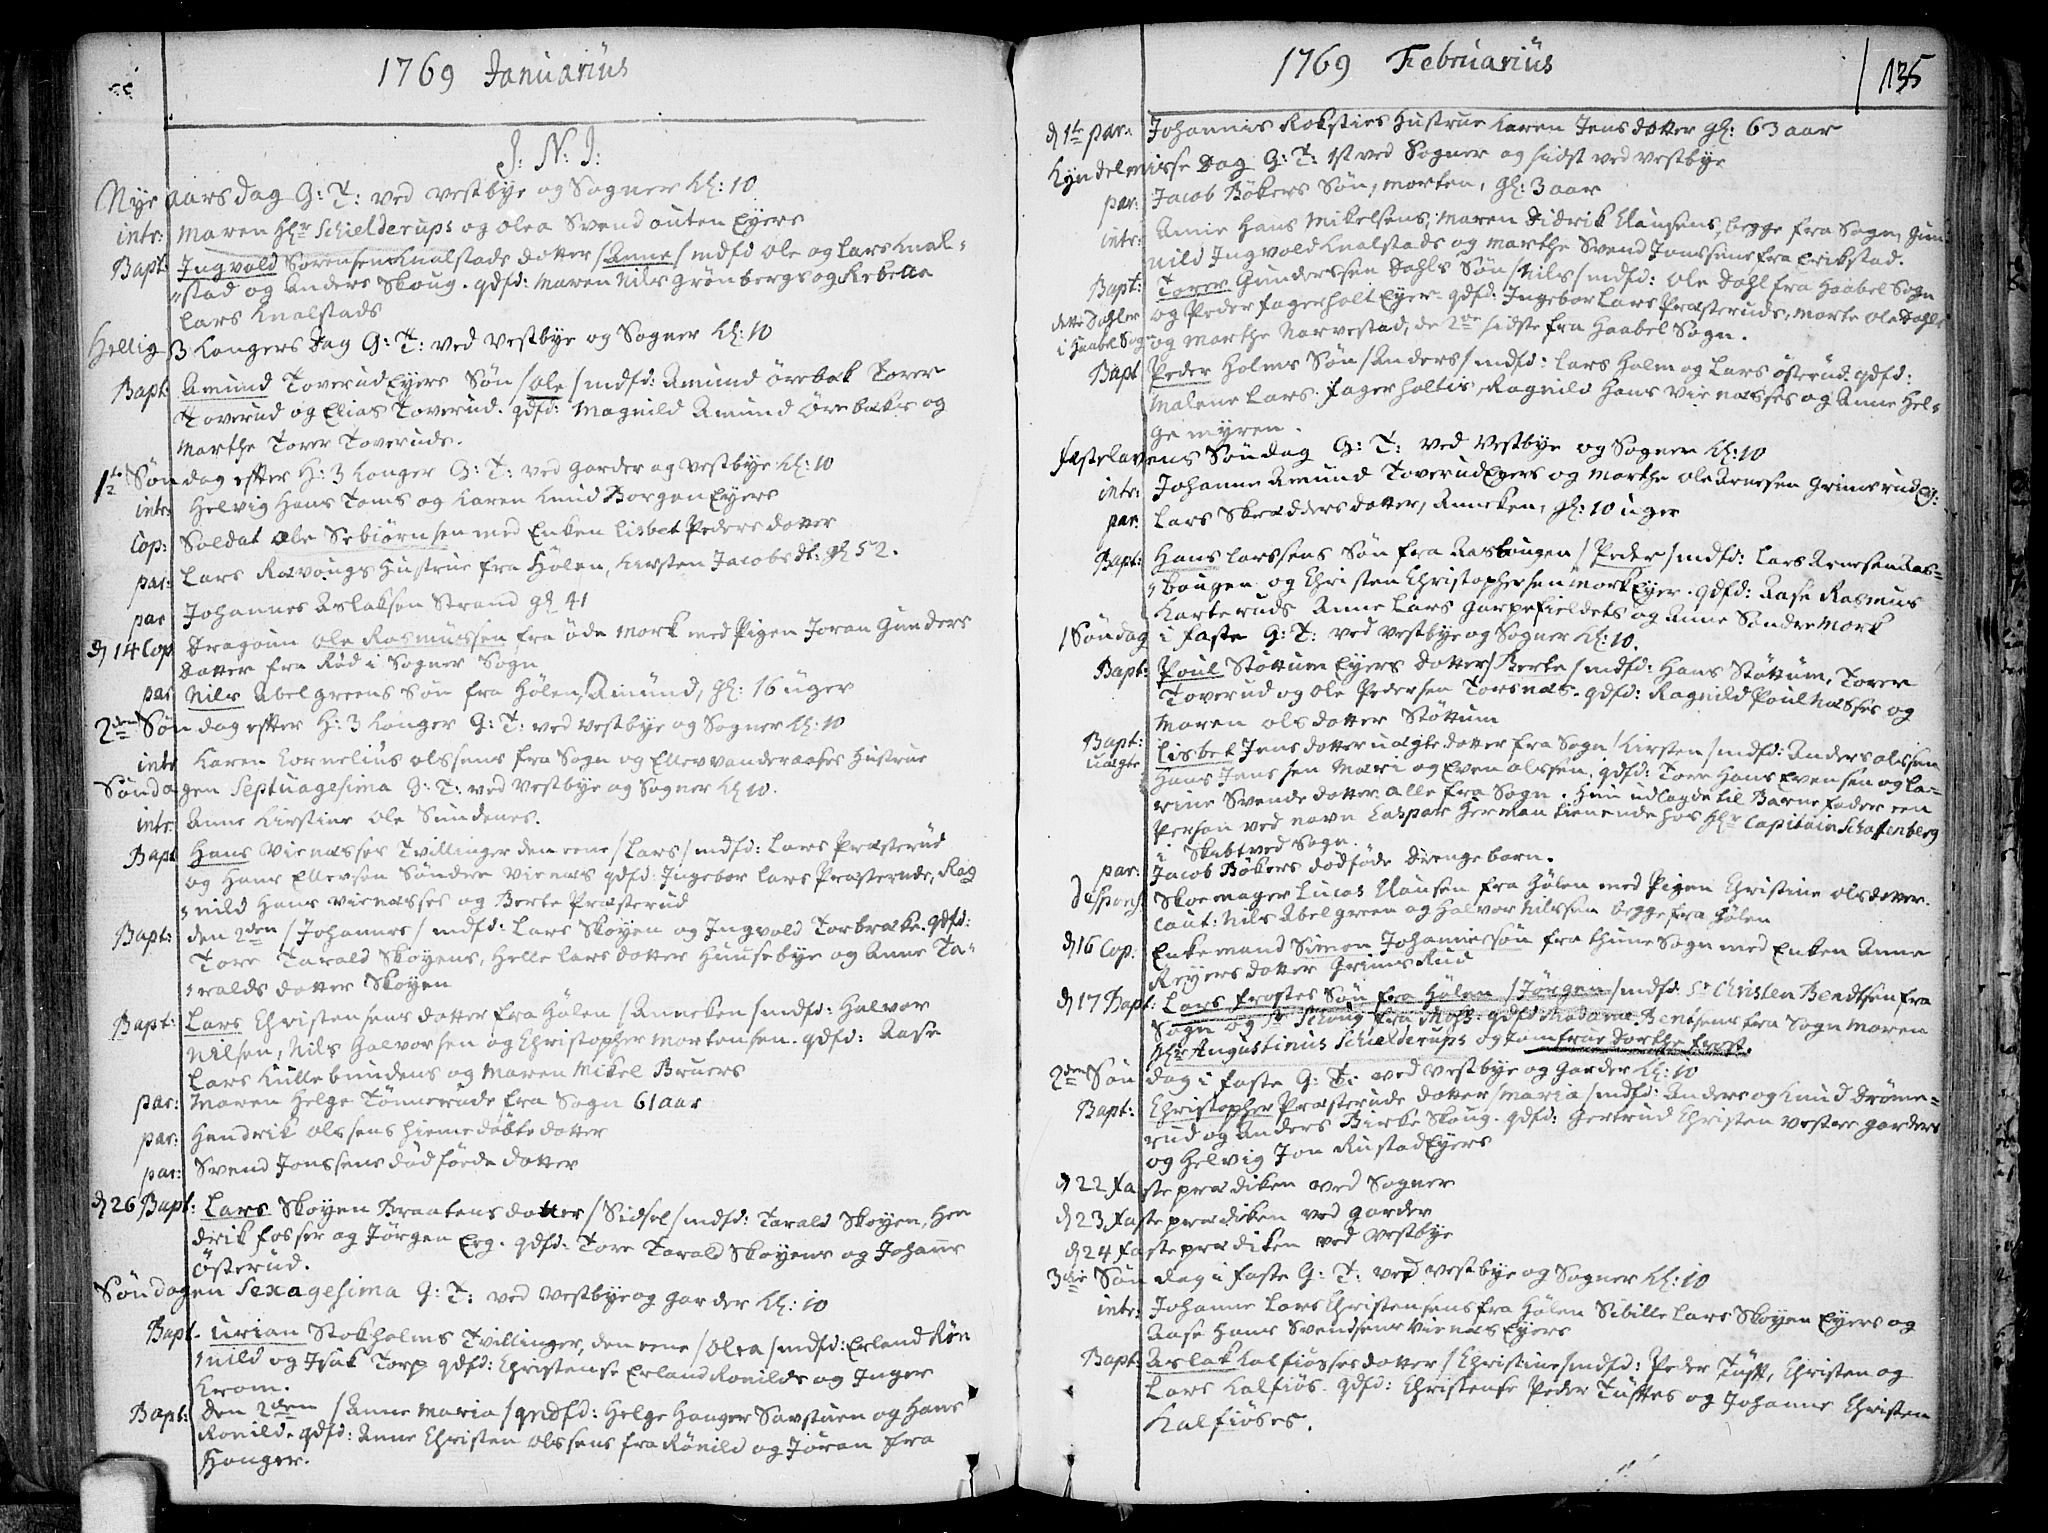 1769 Januarius
J: N: J:
Nye aars Dag G: T: ved Vestbye og Sogner Kl: 10
intr: Maren Hr Schielderups og Olea Svend outen Eyers
Bapt: Ingvold Sørensen Knalstads dotter /Anne/ mdfd Ole og Lars Knal=
stad og Anders Skoug. qdfd: Maren Nils Grønbergs og Rebecca
Lars Knalstads
Hellig 3 Kongers Dag G: T: ved Vestbye og Sogner Kl: 10
Bapt: Amund Toverud Eyers Søn /Ole/ mdfd: Amund Ørebek Torer
Toverud og Elias Toverud. qdfd: Magnild Amund Ørebeks og
Marthe Torer Toveruds.
1te Søndag efter H: 3 Konger G: T: ved Garder og Vestbye Kl: 10
intr: Helvig Hans Toms og Karen Knud Borgen Eyers
Cop: Soldat Ole Sebiørnsen med Enken Lisbet Peders dotter
par: Lars Ravougs Hustrue fra Hølen, Kirsten Jacobs dt: gl 52.
par Johannes Aslaksen Strand gl 41
d 14 Cop Dragoun Ole Rasmussen fra Øde Mork med Pigen Joran Gunders
Dotter fra Rød i Sogner Sogn
par Nils Abelgreens Søn fra Hølen, Amund, gl: 16 uger
2den Søndag efter H: 3 Konger G: T: ved Vestbye og Sogner Kl: 10
intr Karen Cornelius Olssens fra Sogn og Eller Vanderaases Hustrue
Søndagen Septuagesima G: T: ved Vestbye og Sogner Kl 10.
intr: Anne Kirstine Ole Sundenes.
Bapt Hans Vienesses Tvillinger den eene /Lars/ mdfd: Lars Præsterud
og Hans Ellevsen Søndre Vienes qdfd: Ingebor Lars Præsteruds, Rag
nild Hans Vienesses og Berte Præsterud
Bapt: den 2den /Johannes/ mdfd: Lars Skoyen og Ingvold Torbræke. qdfd:
Tore Tarald Skoyens, Helle Lars dotter Huusebye og Anne Ta=
ralds dotter Skoyen
Bapt: Lars Christensens dotter fra Hølen /Anneken/ mdfd: Halvor
Nilsen, Nils Halvorsen og Christopher Mortensen. qdfd: Aase
Lars Kullebundens og Maren Mikel Bruers
par: Maren Helge Tønneruds fra Sogn 61 aar
par: Hendrik Olssens hiemedøbte dotter
par: Svend Jonssens død fødde dotter
d 26 Bapt: Lars Skoyen Braatens dotter /Sidsel/ mdfd: Tarald Skoyen, Hen
drik Fosser og Jørgen Erg. qdfd: Tore Tarald Skoyens og Johanne
Østerud.
Søndagen Sexagesima G: T: ved Vestbye og Garder Kl: 10
Bapt. Urian Stokholms Tvillinger, den eene /Olea/ mdfd: Erland Røn
nild og Isak Torp qdfd: Christense Erland Ronilds og Inger
Krom.
Bapt: Den 2den /Anne Maria/ mdfd: Helge Honger Savstuen og Hans
Ronild. qdfd: Anne Christen Olssens fra Rønild og Joran fra
Honger.
1769 Februarius
135
d 1te par: Johannes Roksties Hustrue Karen Jens dotter gl: 63 aar
Kyndelmisse Dag G: T: 1st ved Sogner og sidst ved Vestbye
par: Jacob Bøkers Søn, Morten, gl: 3 aar
intr: Anne Hans Mikelsens, Maren Didrik Clausens, begge fra Sogn, Gun
nild Ingvold Knalstads og Marthe Svend Jonssens fra Erikstad.
Bapt: Torer Gunderssen Dahls Søn /Nils/ mdfd: Ole Dahl fra Haabel Sogn
dette Dahl er og Peder Fagerholt Eyer. qdfd: Ingebor Lars Præsteruds, Marte Ole Dahls
i Haabel Sogn og Marthe Narvestad, de 2de sidste fra Haabel Sogn.
Bapt Peder Holms Søn /Anders/ mdfd: Lars Holm og Lars Østerud qdfd:
Malene Lars Fagerholtes, Ragnild Hans Vienesses og Anne Hel=
ge Myren.
Fastelavens Søndag G: T: ved Vestbye og Sogner Kl: 10
intr: Johanne Amund Toverud Eyers og Marthe Ole Arnesen Grimsrud Ey:
par. Lars Skredders dotter, Anneken, gl: 10 uger
Bapt: Hans Larssens Søn fra Aasbougen /Peder/ mdfd: Lars Arnesen Aas=
bougen og Christen Christophersen Mork Eyer. qdfd: Aase Rasmus
Karteruds Anne Lars Garpefieldets og Anne Søndre Mork
1 Søndag i Faste G: T: ved Vestbye og Sogner Kl: 10.
Bapt: Poul Støttum Eyers dotter /Berte/ mdfd: Hans Støttum, Torer
Toverud og Ole Pedersen Torsnes. qdfd: Ragnild Poul Nesses og
Maren Olsdotter Støttum
Bapt: Lisbet Jens dotter uægte dotter fra Sogn /Kirsten/ mdfd: Anders Olssen
uægte Hans Jenssen Mari og Even Olssen. qdfd: Tore Hans Evensen og Ca=
rine Svends dotter alle fra Sogn. Hun udlagde til Barnefader een
Person ved navn Caspar Herman tienende hos Hr Capitain Schaffenberg
i Skibtved Sogn.
par: Jacob Bøkers dødføde Drenge barn.
Despons: Skoemager Lucas Clausen fra Hølen med Pigen Christine Olsdotter.
Caut: Nils Abelgreen og Halvor Nilssen begge fra Hølen
d 16 Cop. Enkemand Simon Johannessøn fra Thune Sogn med Enken Anne
Reyers dotter Grims Rud
d 17 Bapt: Lars Frostes Søn fra Hølen /Jørgen/ mdfd: Sr Christen Bendtsen fra
Sogn og Sr Schoug fra Moss. qdfd: Madame Bentsens fra Sogn Maren
Hr Augustinus Schielderups og Jomfrue Dorthe Frost.
2den Søndag i Faste G: T: ved Vestbye og Garder Kl: 10
Bapt: Christopher Præsteruds dotter /Maria/ mdfd: Anders og Knud Drøme=
rud og Anders Birke Skoug. qdfd: Gertrud Christen Vestre Garders
og Helvig Jon Rustad Eyers
d 22 Fasteprædiken ved Sogner
d 23 Fasteprædiken ved Garder
d 24 Fasteprædiken ved Vestbye
3die Søndag i Faste G: T: ved Vestbye og Sogner Kl: 10
intr: Johanne Lars Christensens fra Hølen Sibille Lars Skoyen Eyers og
Aase Hans Svendsens Vienes Eyers
Bapt: Aslak Kalfiøsses dotter /Christine/ mdfd: Peder Tuft, Christen og
Lars Kalfiøs. qdfd: Christense Peder Tuftes og Johanne Christen
Kalfiøses.